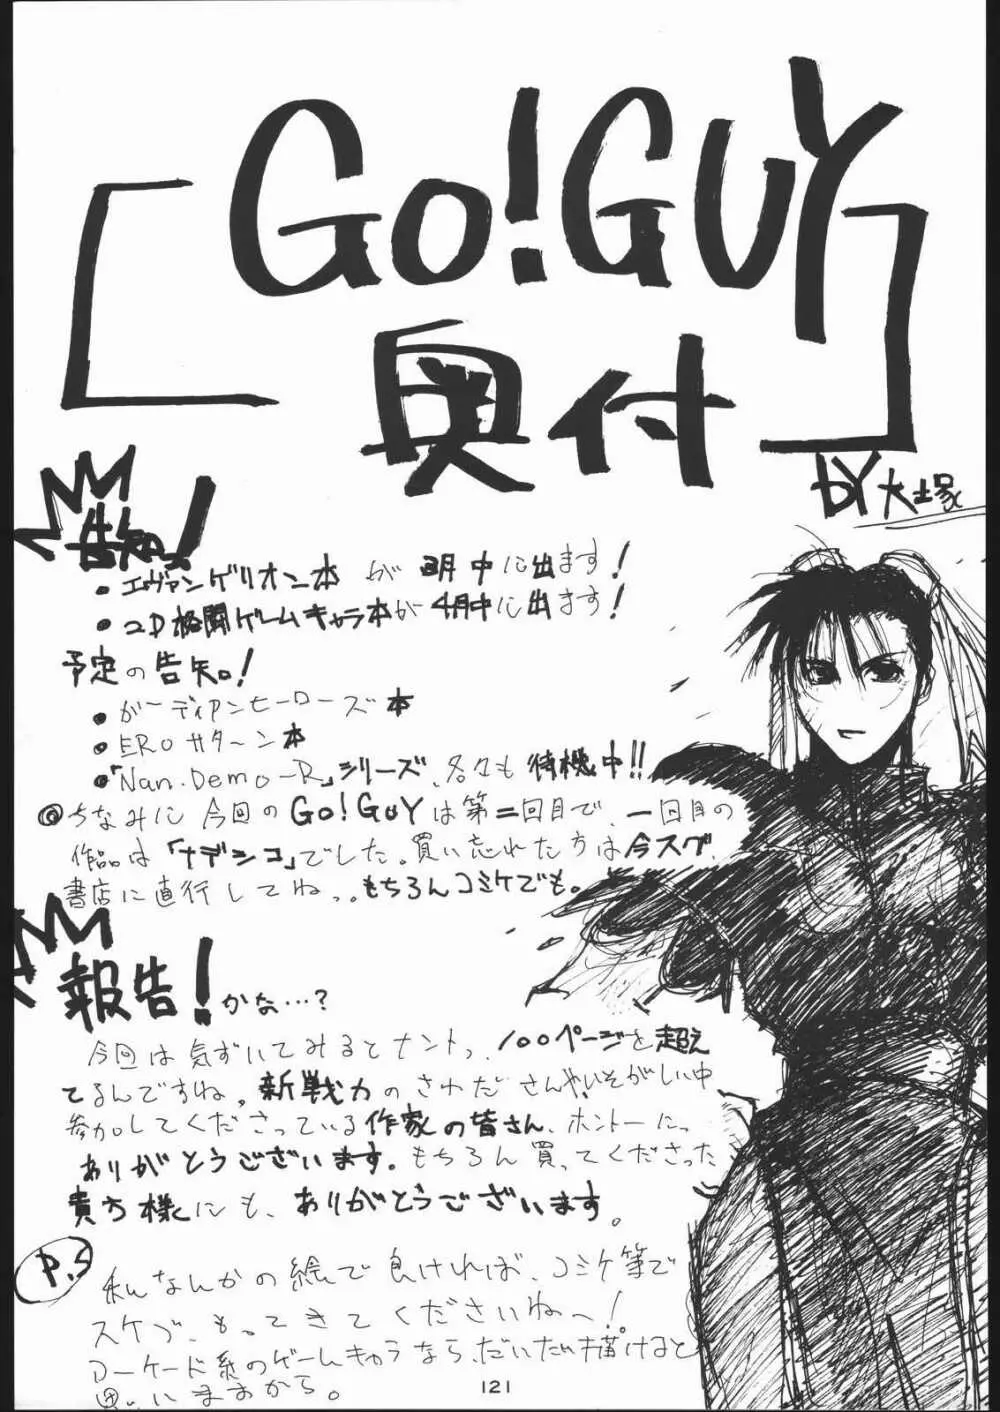 [Go!GUY
奥付]
bY大塚
告知!
・エヴァンゲリオン本が3月中に出ます!
・2D格闘ゲームキャラ本が4月中に出ます!
予定の告知!
・ガーディアンヒーローズ本
・EROサターン本
・「Nan.Demo-R」シリーズ、各々も待機中!!
◎ちなみに今回のGo!GUYは第二回目で、一回目の
作品は「ナデシコ」でした。買い忘れた方は今スグ、
書店に直行してねっ。もちろんコミケでも。
報告!かな…?
今回は気ずいてみるとナントっ、100ページを超え
てるんですね。新戦力のさわださんやいそがしい中
参加してくださっている作家の皆さん、ホントーにっ
ありがとうございます。もちろん買ってくださった
貴方様にも、ありがとうございます。
P.S
私なんかの絵で良ければ、コミケ等で
スケブ、もってきてくださいね〜!
アーケード系のゲームキャラなら、だいたい描けると
思いますから。
121